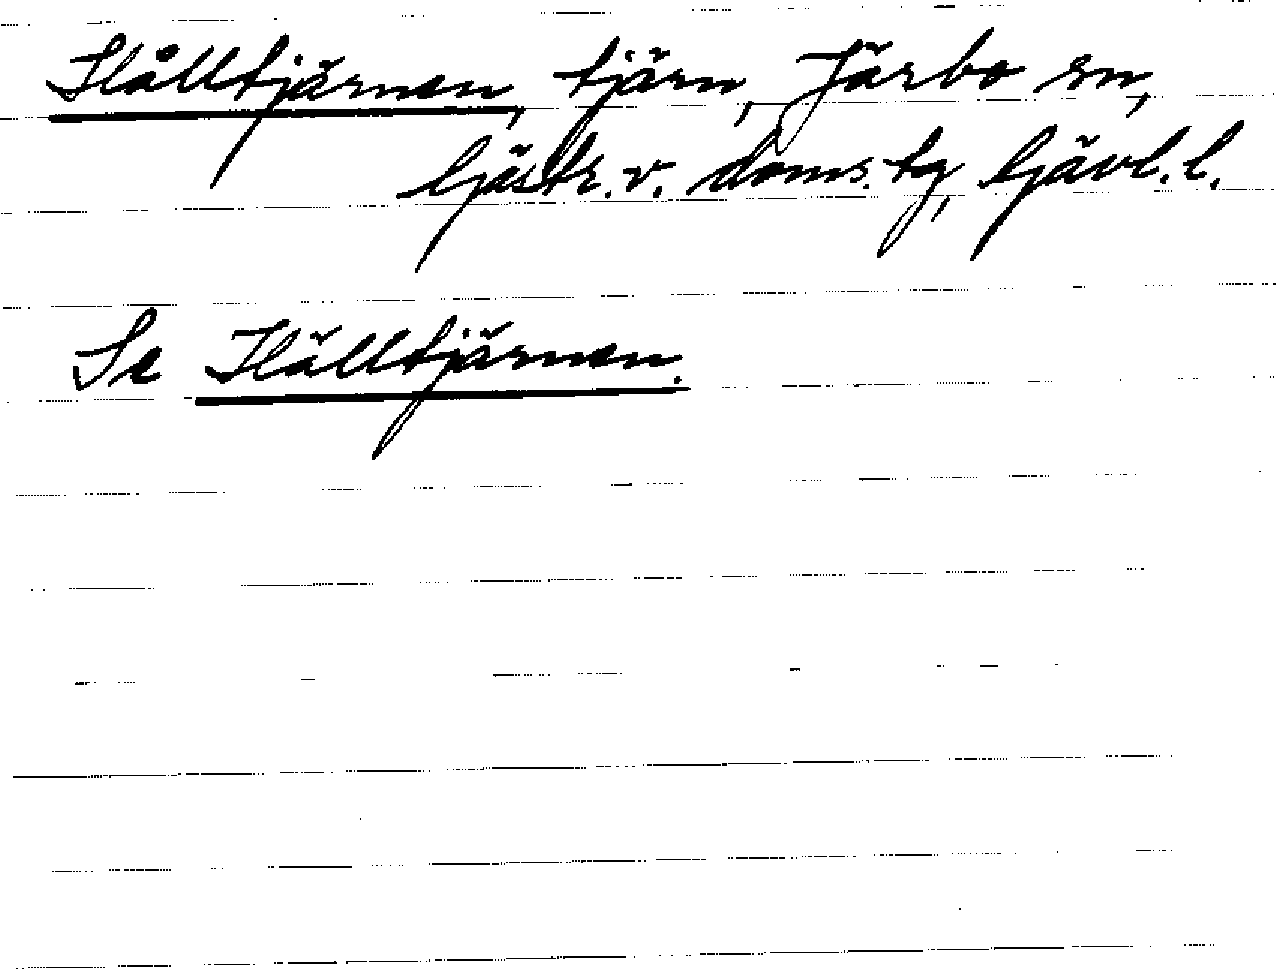 Hålltjärnen, tjärn, Järbo sn,
Gästr. v. doms. tg, Gävl. l.
Se Hälltjärnen.